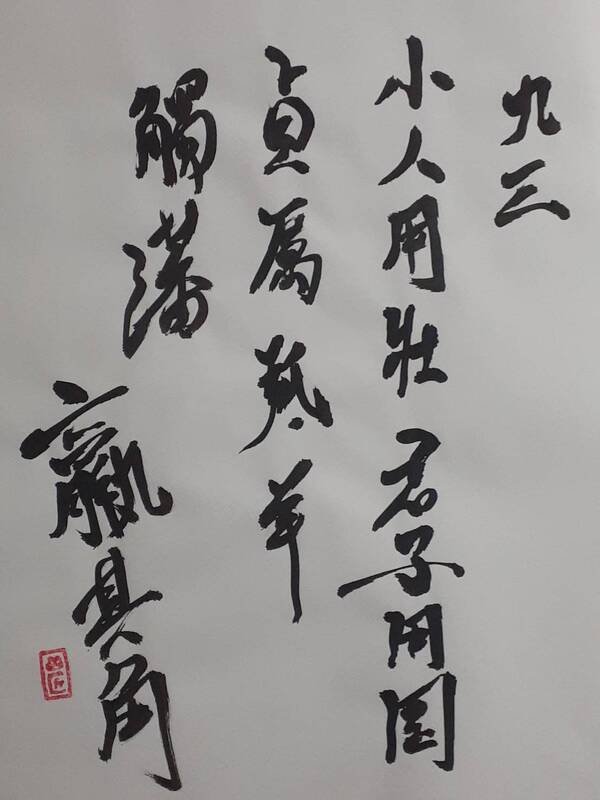 九三
小人用壯君子用罔
貞厲羝羊
觸藩
羸其角